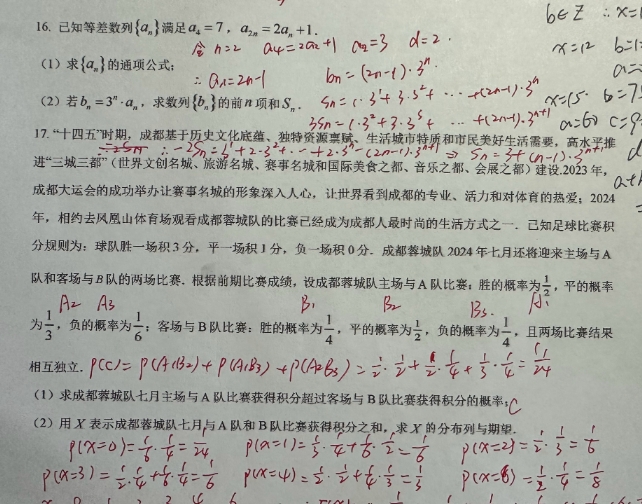 b∈Z ∴x=1
16. 已知等差数列{aₙ}满足a₄=7，a₂ₙ=2aₙ+1.
令n=2 a₄=2a₂+1 a₂=3 d=2.
x=12 b=1
（1）求{aₙ}的通项公式；
∴aₙ=2n-1 bₙ=(2n-1)·3ⁿ.
（2）若bₙ=3ⁿ·aₙ，求数列{bₙ}的前n项和Sₙ.
Sₙ=1·3¹+3·3²+ ··· +(2n-1)·3ⁿ
x=15. b=7
3Sₙ=1·3²+3·3³+ ··· +(2n-1)·3ⁿ⁺¹
17. “十四五”时期，成都基于历史文化底蕴、独特资源禀赋、生活城市特质和市民美好生活需要，高水平推
∴-2Sₙ=3¹+2·3²+···+2·3ⁿ-(2n-1)·3ⁿ⁺¹ ⇒ Sₙ=3+(n-1)·3ⁿ⁺¹
进“三城三都”（世界文创名城、旅游名城、赛事名城和国际美食之都、音乐之都、会展之都）建设.2023年，
成都大运会的成功举办让赛事名城的形象深入人心，让世界看到成都的专业、活力和对体育的热爱；2024
年，相约去凤凰山体育场观看成都蓉城队的比赛已经成为成都人最时尚的生活方式之一．已知足球比赛积
分规则为：球队胜一场积3分，平一场积1分，负一场积0分．成都蓉城队2024年七月还将迎来主场与A
队和客场与B队的两场比赛．根据前期比赛成绩，设成都蓉城队主场与A队比赛：胜的概率为1/2，平的概率
A₂ A₃ B₁ B₂ B₃. A₁
为1/3，负的概率为1/6；客场与B队比赛：胜的概率为1/4，平的概率为1/2，负的概率为1/4，且两场比赛结果
相互独立.
P(C)=P(A₁B₂)+P(A₁B₃)+P(A₂B₃)=1/2·1/2+1/2·1/4+1/3·1/4=11/24
（1）求成都蓉城队七月主场与A队比赛获得积分超过客场与B队比赛获得积分的概率；C
（2）用X表示成都蓉城队七月与A队和B队比赛获得积分之和，求X的分布列与期望．
P(X=0)=1/6·1/4=1/24 P(X=1)=1/3·1/4+1/6·1/2=1/6 P(X=2)=1/2·1/3=1/6
P(X=3)=1/2·1/4+1/6·1/4=1/6 P(X=4)=1/2·1/2+1/4·1/3=1/3 P(X=6)=1/2·1/4=1/8